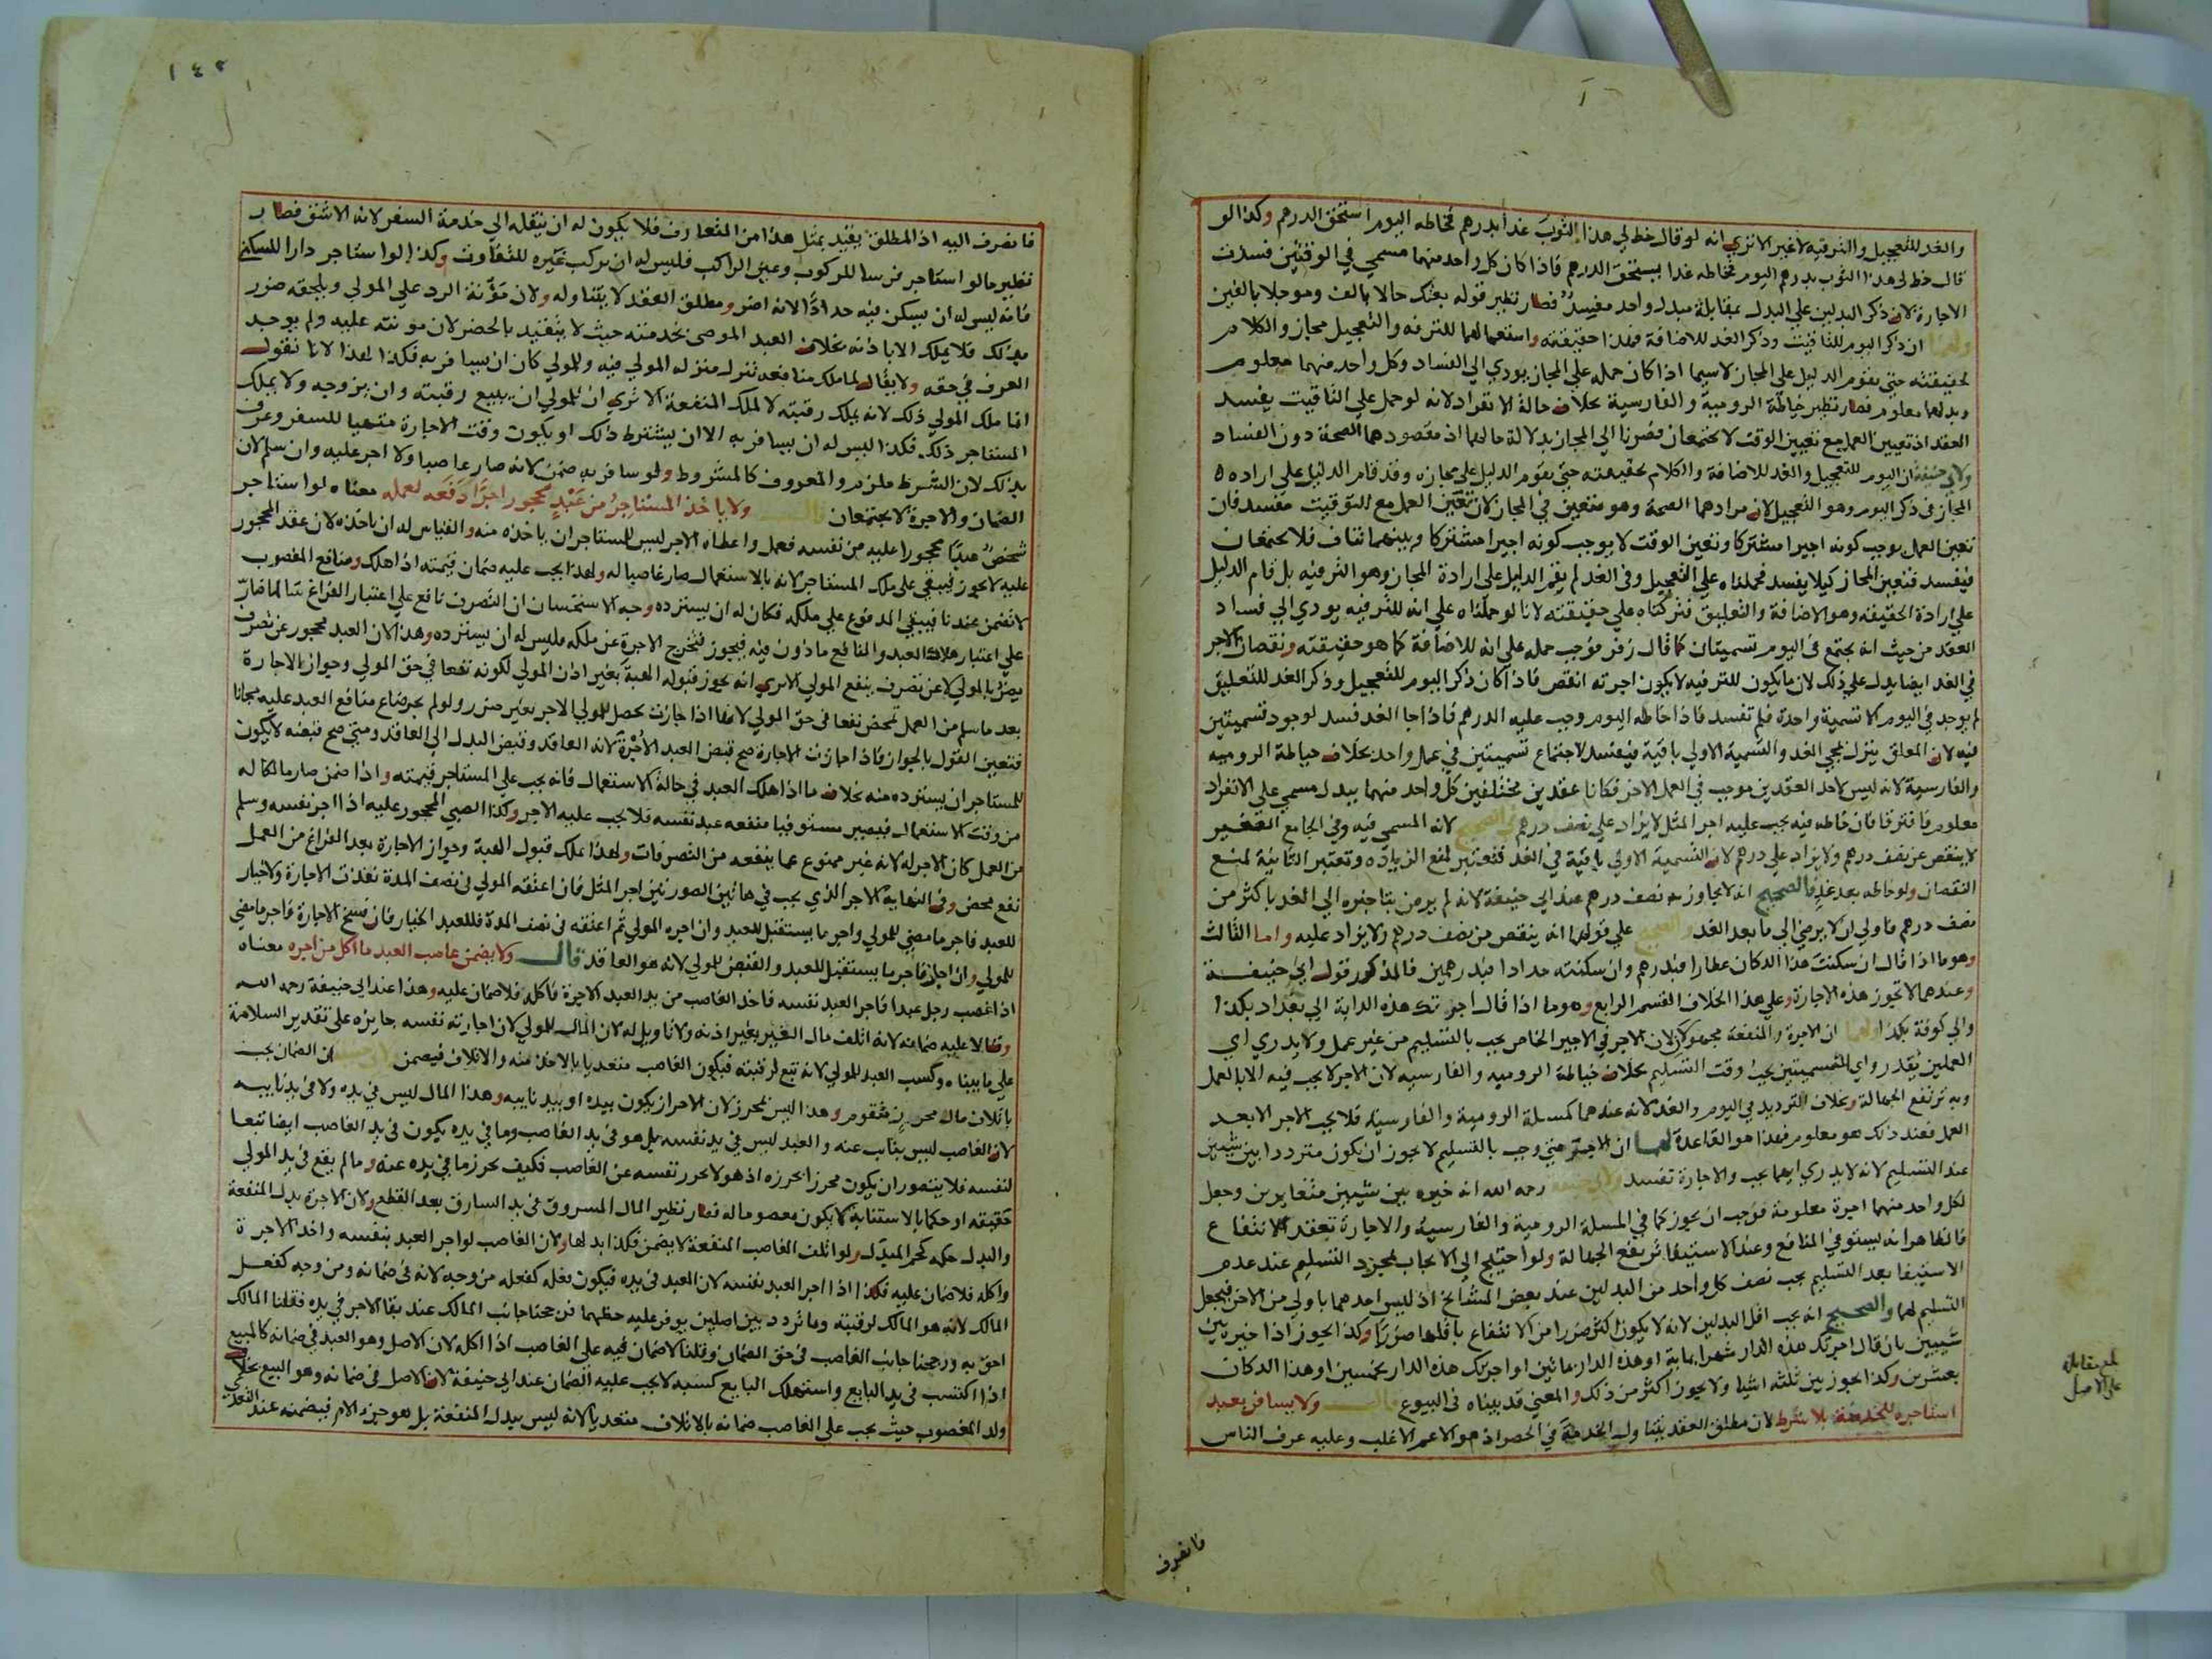 والغد للتعجيل والترفيه لا غير الا تري انه لو قال خط لي هذا الثوب غدا بدرهم فخاطه اليوم استحق الدرهم وكذا لو
قال خط لي هذا الثوب بدرهم اليوم فخاطه غدا يستحق الدرهم فاذا كان كل واحد منهما مسمي في الوقتين فسدت
الاجارة لان ذكر البدلين علي البدل بمقابلة مبدل واحد مفسد فصار نظير قوله بعتك حالا بالف وموجلا بالفين
ولهما ان ذكر اليوم للتاقيت وذكر الغد للاضافة فهذا حقيقته واستعمالهما للترفه والتعجيل مجاز والكلام
لحقيقته حتي يقوم الدليل علي المجاز لاسيما اذا كان حمله علي المجاز يودي الي الفساد وكل واحد منهما معلوم
وبدلهما معلوم فصار نظير خياطة الرومية والفارسية بخلاف حالة الانفراد لانه لو حمل علي التاقيت يفسد
العقد اذ تعيين العمل مع تعيين الوقت لا يجتمعان فصرنا الي المجاز بدلالة حالهما اذ مقصودهما الصحة دون الفساد
ولابي حنيفة ان اليوم للتعجيل والغد للاضافة والكلام لحقيقته حتي يقوم الدليل علي مجازه وقد قام الدليل علي اراده
المجاز في ذكر اليوم وهو التعجيل لان مرادهما الصحة وهو متعين في المجاز لان تعين العمل مع التوقيت مفسد فان
تعين العمل يوجب كونه اجيرا مشتركا وتعين الوقت لا يوجب كونه اجيرا مشتركا وبينهما تناف فلا يجتمعان
فيفسد فتعين المجاز كيلا يفسد فحملناه علي التعجيل وفي الغد لم يقم الدليل علي ارادة المجاز وهو الترفيه بل قام الدليل
علي ارادة الحقيقه وهو الاضافة والتعليق فتركناه علي حقيقته لانا لو حملناه علي انه للترفيه يودي الي فساد
العقد من حيث انه يجتمع في اليوم تسميتان كما قال زفر فوجب حمله علي انه للاضافة كما هو حقيقته ونقصان الاجر
في الغد ايضا يدل علي ذلك لان ما يكون للترفيه لا يكون اجرته انقص فاذا كان ذكر اليوم للتعجيل وذكر الغد للتعليق
لم يوجد في اليوم الا تسمية واحدة فلم تفسد فاذا خاطه اليوم وجب عليه الدرهم فاذا جا الغد فسد لوجود تسميتين
فيه لان المعلق ينزل بمجي الغد والتسمية الاولي باقية فيفسد لاجتماع تسميتين في عمل واحد بخلاف خياطة الروميه
والفارسية لانه ليس لاحد العقدين موجب في العمل الاخر فكانا عقدين مختلفين كل واحد منهما ببدل مسمي علي الانفراد
معلوم فافترقا فان خاطه فيه يجب عليه اجر المثل لا يزاد علي نصف درهم في الصحيح لانه المسمي فيه وفي الجامع الصغير
لا ينقص عن نصف درهم ولا يزاد علي درهم لان التسمية الاولي باقية في الغد فتعتبر لمنع الزياده وتعتبر الثانية لمنع
النقصان ولو خاطه بعد غد فالصحيح انه لا يجاوز به نصف درهم عند ابي حنيفة لانه لم يرض بتاخيره الي الغد باكثر من
نصف درهم فاولي ان لا يرضي الي ما بعد الغد والصحيح علي قولهما انه ينقص من نصف درهم ولا يزاد عليه واما الثالث
وهو ما اذا قال ان سكنت هذا الدكان عطارا فبدرهم وان سكنته حدادا فبدرهمين فالمذكور قول ابي حنيفة
وعندهما لا تجوز هذه الاجارة وعلي هذا الخلاف القسم الرابع وهو ما اذا قال اجرتك هذه الدابة الي بغداد بكذا
والي كوفة بكذا لهما ان الاجرة والمنفعة مجهولة لان الاجر في الاجير الخاص يجب بالتسليم من غير عمل ولا يدري اي
العملين يقدر واي التسميتين يجب وقت التسليم بخلاف خياطة الروميه والفارسيه لان الاجر لا يجب فيه الا بالعمل
وبه ترتفع الجهالة وبخلاف الترديد في اليوم والغد لانه عندهما كمسلة الرومية والفارسية فلا يجب الاجر الا بعد
العمل فعند ذلك هو معلوم فهذا هو القاعدة لهما ان الاجر متي وجب بالتسليم لا يجوز ان يكون مترددا بين شيئين
عند التسليم لانه لا يدري ايهما يجب والاجارة تفسد ولابي حنيفة رحمه الله انه خيره بين شيئين متغايرين وجعل
لكل واحد منهما اجرة معلومة فوجب ان يجوز كما في المسلة الرومية والفارسية والاجارة تعقد للانتفاع
فالظاهر انه يستوفي المنافع وعند الاستيفا ترتفع الجهالة ولو احتيج الي الايجاب بمجرد التسليم عند عدم
الاستيفا بعد التسليم يجب نصف كل واحد من البدلين عند بعض المشايخ اذ ليس احدهما باولي من الاخر فيجعل
التسليم لهما والصحيح انه يجب اقل البدلين لانه لا يكون اكثر ضررا من الانتفاع باقلها ضررا وكذا يجوز اذا خيره بين
شيئين بان قال اجرتك هذه الدار شهرا بماية او هذه الدار بمائتين او اجرتك هذه الدار بخمسين او هذا الدكان
بعشرين وكذا يجوز بين ثلثه اشيا ولا يجوز اكثر من ذلك والمعني قد بيناه في البيوع قال ولا يسافر بعبد
استاجره للخدمة بلا شرط لان مطلق العقد يتناول الخدمة في الحضر اذ هو الاعم الاغلب وعليه عرف الناس
بلغ مقابلة
علي الاصل
فانصرف
١٤٢
فانصرف اليه اذ المطلق يتقيد بمثل هذا من المتعارف فلا يكون له ان ينقله الي خدمة السفر لانه الاشق فصار
نظير ما لو استاجر فرسا للركوب وعين الراكب فليس له ان يركب غيره للتفاوت وكذا لو استاجر دارا للسكني
فانه ليس له ان يسكن فيه حدادا لانه اضر ومطلق العقد لا يتناوله ولان مؤنة الرد علي المولي ويلحقه ضرر
بذلك فلا يملك الا باذنه بخلاف العبد الموصي بخدمته حيث لا يتقيد بالحضر لان مونته عليه ولم يوجد
العرف في حقه ولا يقال لما ملك منافعه نزل منزله المولي فيه وللمولي كان ان يسافر به فكذا لهذا لانا نقول
انما ملك المولي ذلك لانه يملك رقبته لا لملك المنفعة الا تري ان للمولي ان يبيع رقبته وان يزوجه ولا يملك
المستاجر ذلك فكذا ليس له ان يسافر به الا ان يشترط ذلك او يكون وقت الاجارة متهيا للسفر وعرف
بذلك لان الشرط ملزم والمعروف كالمشروط ولو سافر به ضمن لانه صار غاصبا ولا اجر عليه وان سلم لان
الضمان والاجرة لا يجتمعان قال ولا ياخذ المستاجر من عبد محجور اجرا دفعه لعمله معناه لو استاجر
شخص عبدا محجورا عليه من نفسه فعمل واعطاه الاجر ليس للمستاجر ان ياخذه منه والقياس له ان ياخذه لان عقد المحجور
عليه لا يجوز فيبقي علي ملك المستاجر لانه بالاستعمال صار غاصبا له ولهذا يجب عليه ضمان قيمته اذا هلك ومنافع المغصوب
لا تضمن عندنا فيبقي المدفوع علي ملكه فكان له ان يسترده وجه الاستحسان ان التصرف نافع علي اعتبار الفراغ سالما ضار
علي اعتبار هلاك العبد والنافع ماذون فيه فيجوز فتخرج الاجرة عن ملكه فليس له ان يسترده وهذا لان العبد محجور عن تصرف
يضر بالمولي لا عن تصرف ينفع المولي الا تري انه يجوز قبوله الهبة بغير اذن المولي لكونه نفعا في حق المولي وجواز الاجارة
بعد ما سلم من العمل تمحض نفعا في حق المولي لانها اذا جازت تحصل للمولي الاجر بغير ضرر ولو لم يجز ضاع منافع العبد عليه مجانا
فتعين القول بالجواز فاذا جازت الاجارة صح قبض العبد الاجرة لانه العاقد وقبض البدل الي العاقد ومتي صح قبضه لا يكون
للمستاجر ان يسترده منه بخلاف ما اذا هلك العبد في حالة الاستعمال فانه يجب علي المستاجر قيمته واذا ضمن صار مالكا له
من وقت الاستعمال فيصير مستوفيا منفعه عبد نفسه فلا يجب عليه الاجر وكذا الصبي المحجور عليه اذا اجر نفسه وسلم
من العمل كان الاجر له لانه غير ممنوع عما ينفعه من التصرفات ولهذا يملك قبول الهبة وجواز الاجارة بعد الفراغ من العمل
نفع محض وفي النهاية الاجر الذي يجب في هاتين الصورتين اجر المثل فان اعتقه المولي في نصف المدة نفذت الاجارة ولا خيار
للعبد فاجر ما مضي للمولي واجر ما يستقبل للعبد وان اجره المولي ثم اعتقه في نصف المدة فللعبد الخيار فان فسخ الاجارة فاجر ما مضي
للمولي وان اجاز فاجر ما يستقبل للعبد والقبض للمولي لانه هو العاقد قال ولا يضمن غاصب العبد ما اكل من اجره معناه
اذا غصب رجل عبدا فاجر العبد نفسه فاخذ الغاصب من يد العبد الاجرة فاكله فلا ضمان عليه وهذا عند ابي حنيفة رحمه الله
وقالا عليه ضمانه لانه اتلف مال الغير بغير اذنه ولا تاويل له لان المال للمولي لان اجارته نفسه جايزه علي تقدير السلامة
علي ما بيناه وكسب العبد للمولي لانه تبع لرقبته فيكون الغاصب متعديا بالاخذ منه والاتلاف فيضمن ولابي حنيفة ان الضمان يجب
باتلاف مال محرز متقوم وهذا ليس بمحرز لان الاحراز يكون بيده او بيد نايبه وهذا المال ليس في يده ولا في يد نايبه
لان الغاصب ليس بنايب عنه والعبد ليس في يد نفسه بل هو في يد الغاصب وما في يده يكون في يد الغاصب ايضا تبعا
لنفسه فلا يتصور ان يكون محرزا بحرزه اذ هو لا يحرز نفسه عن الغاصب فكيف يحرز ما في يده عنه وما لم يقع في يد المولي
حقيقه او حكما بالاستنابة لا يكون معصوما له فصار نظير المال المسروق في يد السارق بعد القطع ولان الاجرة بدل المنفعة
والبدل حكمه كحكم المبدل ولو اتلف الغاصب المنفعة لا يضمن فكذا بدلها ولان الغاصب لو اجر العبد بنفسه واخذ الاجرة
واكله فلا ضمان عليه فكذا اذا اجر العبد نفسه لان العبد في يده فيكون فعله كفعله من وجه لانه في ضمانه ومن وجه كفعل
المالك لانه هو المالك لرقبته وما تردد بين اصلين يوفر عليه حظهما فرجحنا جانب المالك عند بقا الاجر في يده فقلنا المالك
احق به ورجحنا جانب الغاصب في حق الضمان وقلنا لا ضمان فيه علي الغاصب اذا اكله لان الاصل وهو العبد في ضمانه كالمبيع
اذا اكتسب في يد البايع واستهلك البايع كسبه لا يجب عليه الضمان عند ابي حنيفة لان الاصل في ضمانه وهو البيع بخلاف
ولد المغصوب حيث يجب علي الغاصب ضمانه بالاتلاف متعديا لانه ليس ببدل المنفعة بل هو جزء الام فيضمنه عند التعدي